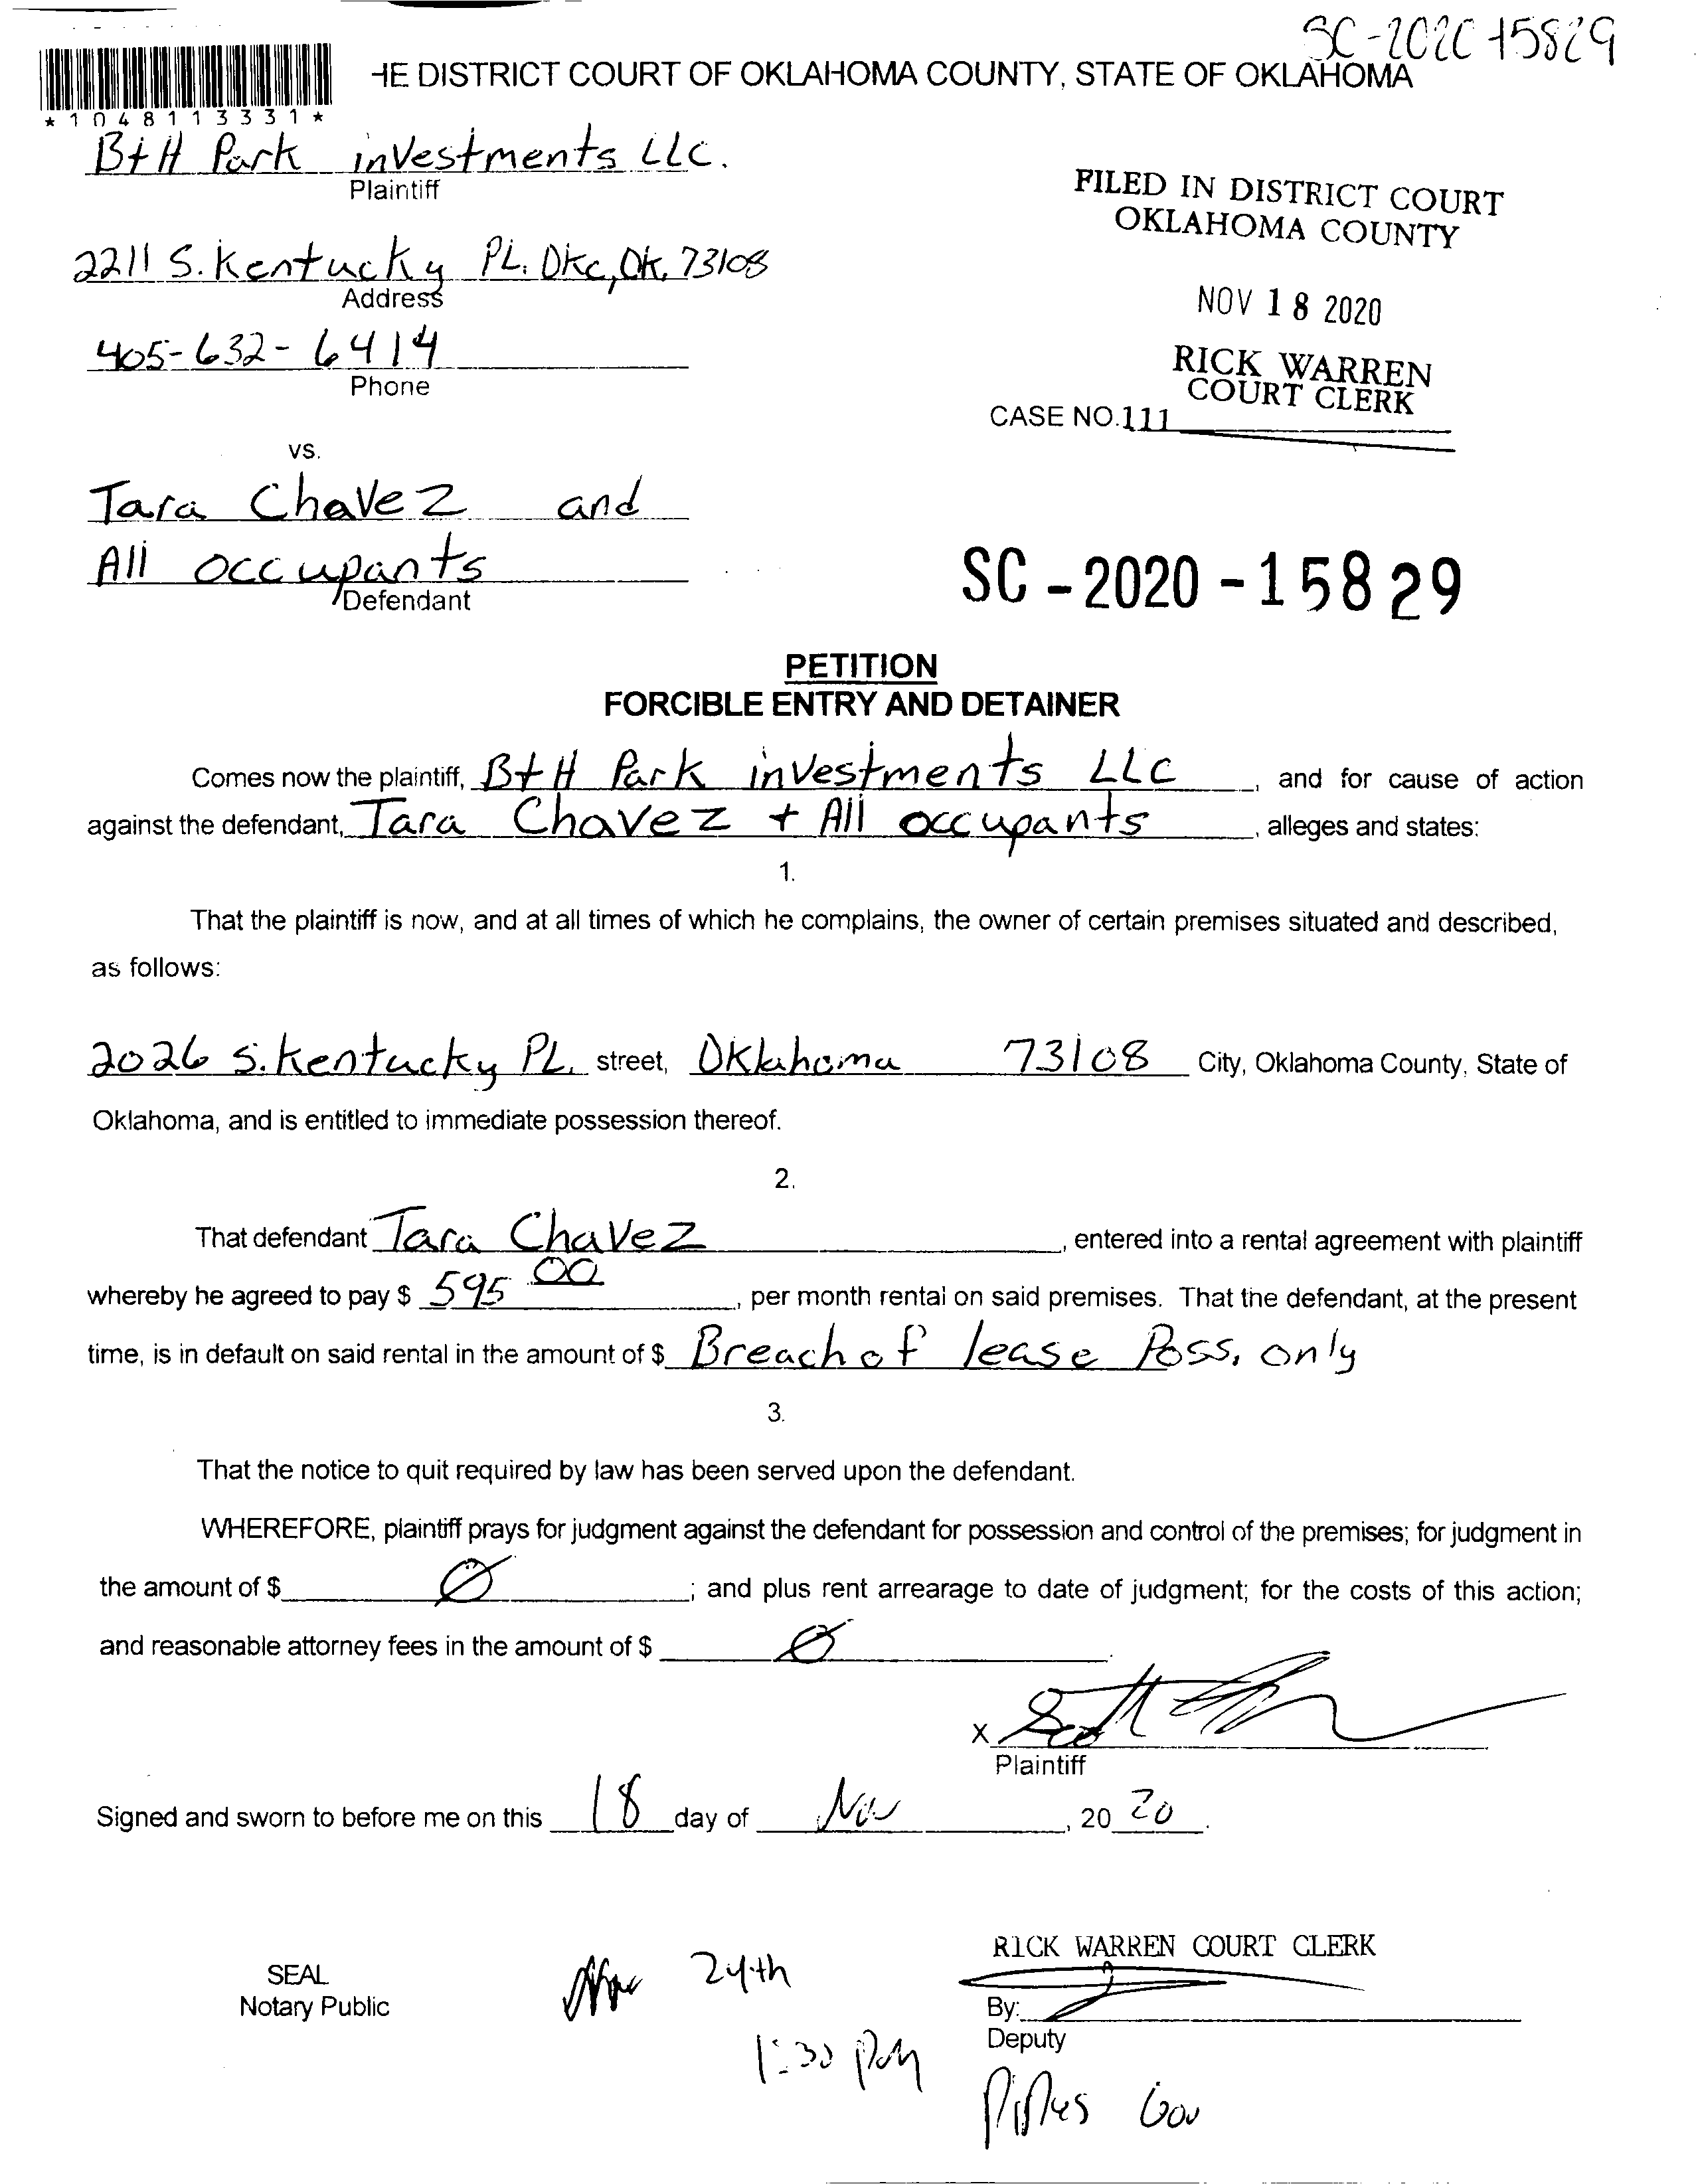 SC-2020-15829
HE DISTRICT COURT OF OKLAHOMA COUNTY, STATE OF OKLAHOMA
*1048113331*
B+H Park investments LLC.
Plaintiff
FILED IN DISTRICT COURT
OKLAHOMA COUNTY
2211 S. Kentucky PL. Okc, Ok. 73108
Address
NOV 18 2020
405-632-6414
Phone
RICK WARREN
COURT CLERK
CASE NO.111
vs.
Tara Chavez and
All occupants
Defendant
SC-2020-15829
PETITION
FORCIBLE ENTRY AND DETAINER
Comes now the plaintiff, B+H Park investments LLC, and for cause of action
against the defendant, Tara Chavez + All occupants, alleges and states:
1.
That the plaintiff is now, and at all times of which he complains, the owner of certain premises situated and described,
as follows:
2026 S. Kentucky PL. street, Oklahoma 73108 City, Oklahoma County, State of
Oklahoma, and is entitled to immediate possession thereof.
2.
That defendant Tara Chavez, entered into a rental agreement with plaintiff
whereby he agreed to pay $ 595 00, per month rental on said premises. That the defendant, at the present
time, is in default on said rental in the amount of $ Breach of lease Poss. only
3.
That the notice to quit required by law has been served upon the defendant.
WHEREFORE, plaintiff prays for judgment against the defendant for possession and control of the premises; for judgment in
the amount of $ Ø; and plus rent arrearage to date of judgment; for the costs of this action;
and reasonable attorney fees in the amount of $ Ø.
X
Plaintiff
Signed and sworn to before me on this 18 day of Nov, 2020.
RICK WARREN COURT CLERK
SEAL
Notary Public
24th
By:
Deputy
1:30 PM